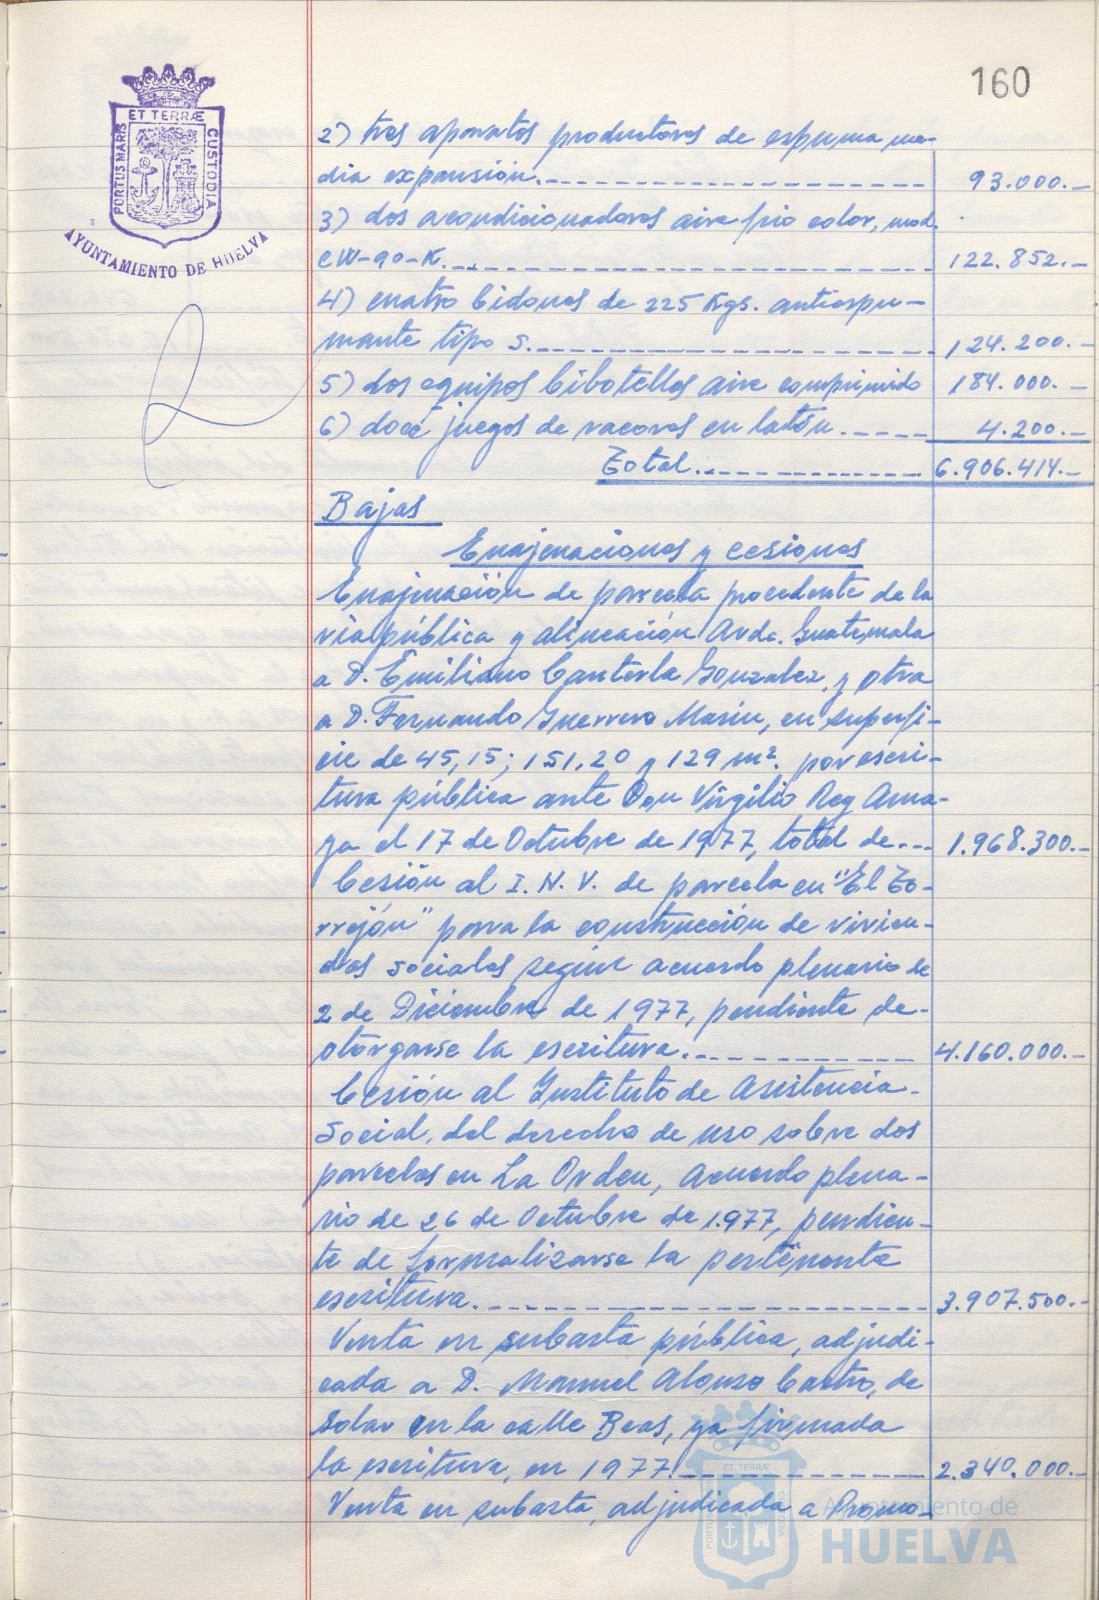 160
ET TERRÆ
PORTUS MARIS
CUSTODIA
AYUNTAMIENTO DE HUELVA
2) tres aparatos productores de espuma me-
dia expansión. 93.000.-
3) dos acondicionadores aire frio color, mod.
CW-90-K. 122.852.-
4) cuatro bidones de 225 Kgs. antiespu-
mante tipo S. 124.200.-
5) dos equipos bibotellas aire comprimido 184.000.-
6) doce juegos de racores en latón. 4.200.-
Total. 6.906.414.-
Bajas
Enajenaciones y cesiones
Enajenación de parcela procedente de la
via pública y alineación Avda. Guatemala
a D. Emiliano Canterla Gonzalez, y otra
a D. Fernando Guerrero Marin, en superfi-
cie de 45,15; 151,20 y 129 m². por escri-
tura pública ante Don Virgilio Rey Ama-
ya el 17 de Octubre de 1977, total de 1.968.300.-
Cesión al I.N.V. de parcela en "El To-
rrejón" para la construcción de vivien-
das sociales según acuerdo plenario de
2 de Diciembre de 1977, pendiente de-
otorgarse la escritura. 4.160.000.-
Cesión al Instituto de Asistencia-
Social, del derecho de uso sobre dos
parcelas en La Orden, acuerdo plena-
rio de 26 de Octubre de 1.977, pendien-
te de formalizarse la pertinente
escritura. 3.907.500.-
Venta en subasta pública, adjudi-
cada a D. Manuel Alonso Castro, de
Solar en la calle Beas, ya firmada
la escritura, en 1977. 2.340.000.-
Venta en subasta, adjudicada a Promo-
ET TERRÆ
Ayuntamiento de
HUELVA